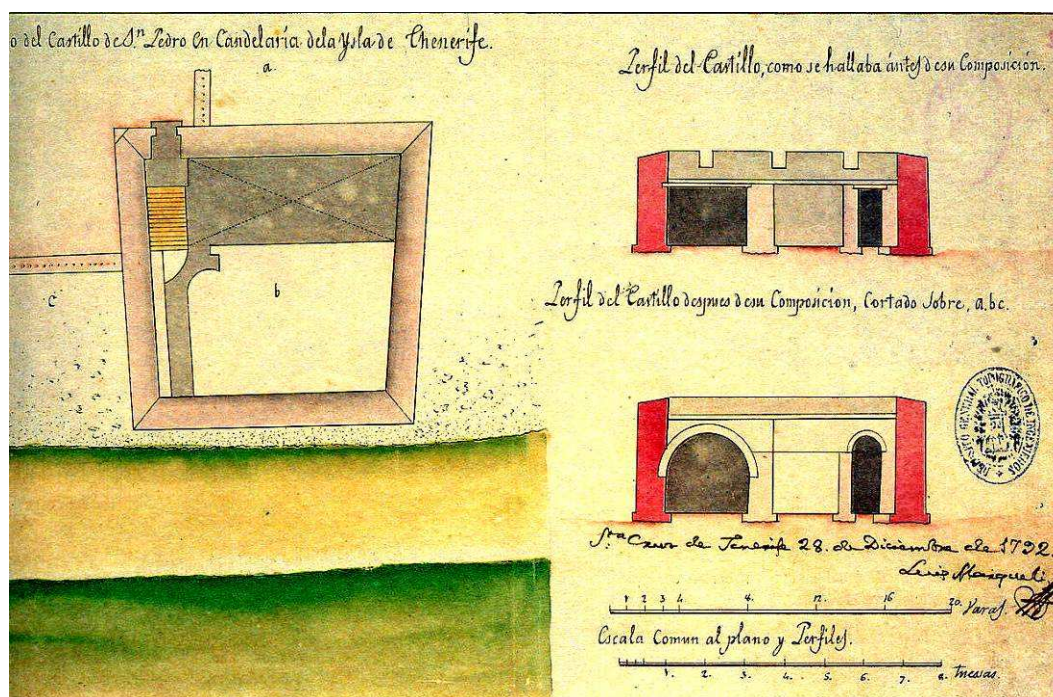 o del Castillo de S.ⁿ Pedro en Candelaria dela Ysla de Thenerife.
a.
c
b
Perfil del Castillo, como se hallaba ántes de su Composición.
Perfil del Castillo despues de su Composicion, Cortado sobre, a.b.c.
DEPOSITO GENERAL TOPOGRAFICO DE INGENIEROS
S.ta Cruz de Tenerife 28. de Diciembre de 1792.
Luis Marqueli
1 2 3 4. 4. 12. 16 20. Varas.
Escala Comun al plano y Perfiles.
1. 2. 3. 4. 5. 6. 7. 8. Tuesas.